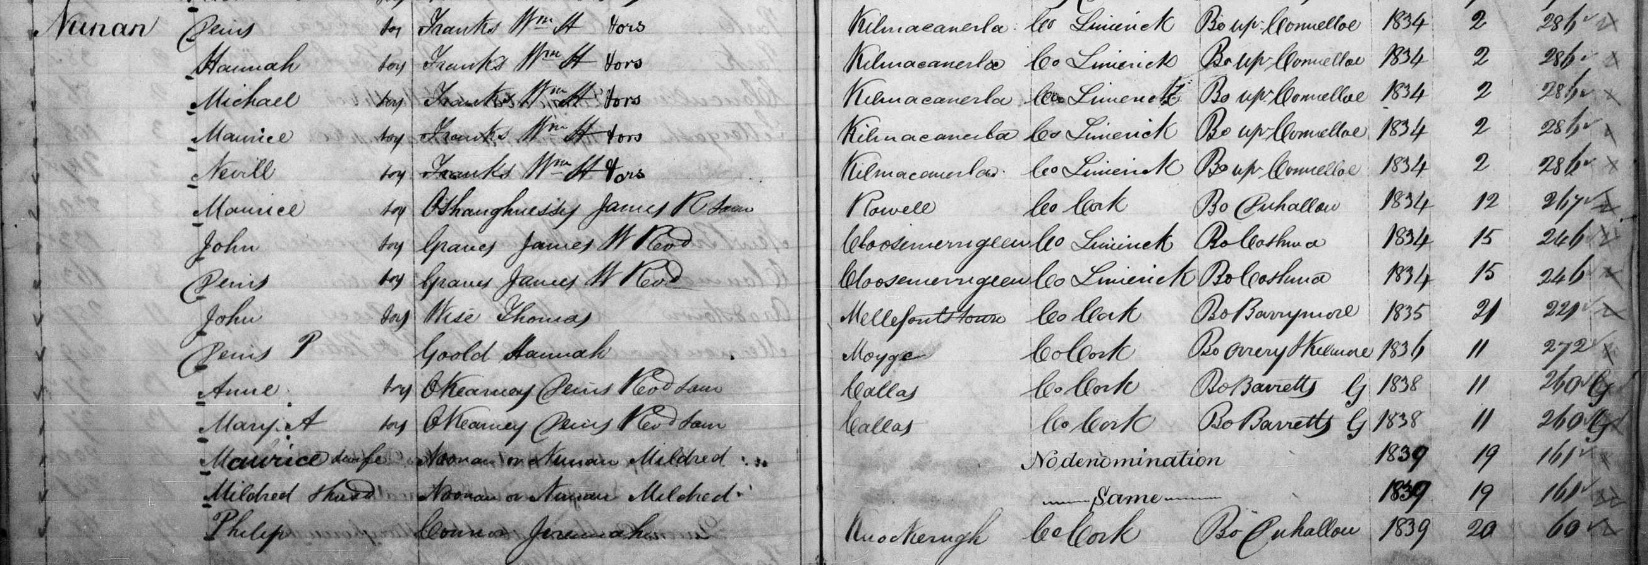 Nunan Denis toy Franks Wm H & ors Kilmacanerla Co Limerick Bo upr Connelloe 1834 2 286
Hannah toy Franks Wm H & ors Kilmacanerla Co Limerick Bo upr Connelloe 1834 2 286
Michael toy Franks Wm H & ors Kilmacanerla Co Limerick Bo upr Connelloe 1834 2 286
Maurice toy Franks Wm H & ors Kilmacanerla Co Limerick Bo upr Connelloe 1834 2 286
Nevill toy Franks Wm H & ors Kilmacanerla Co Limerick Bo upr Connelloe 1834 2 286
Maurice toy OShaughnessy James R Rowell Co Cork Bo Duhallow 1834 12 267
John toy Graves James W Co Limerick Bo Coshma 1834 15 246
Denis toy Graves James W Co Limerick Bo Coshma 1834 15 246
John toy Wise Thomas Mellefontstown Co Cork Bo Barrymore 1835 21 221
Denis P Goold Hannah Moyge Co Cork Bo Orrery & Kilmore 1836 11 272
Anne toy OKearney Denis Callas Co Cork Bo Barretts G 1838 11 260 G
Mary A toy OKearney Denis Callas Co Cork Bo Barretts G 1838 11 260 G
Maurice & wife Noonan or Nunan Mildred No denomination 1839 19 161
Mildred & husd Noonan or Nunan Mildred Same 1839 19 161
Philip Connor Jeremiah Co Cork Bo Duhallow 1839 20 60